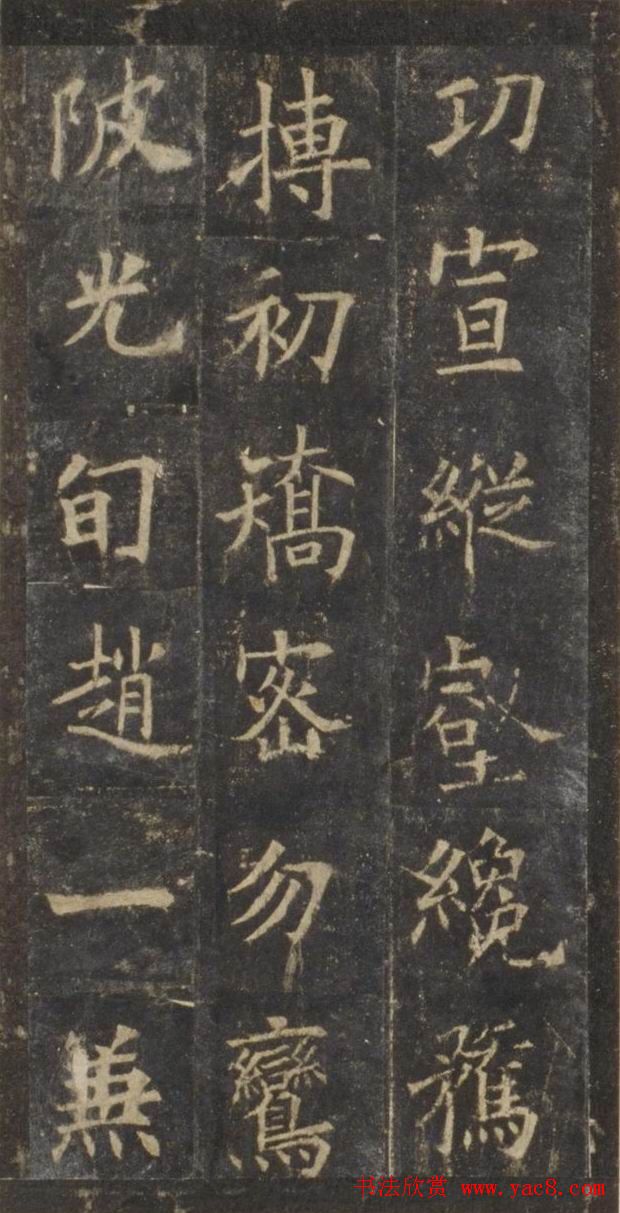 功宣縱壑纔鶵
搏初矯密勿鸞
陂光旬趙一兼
书法欣赏 www.yac8.com